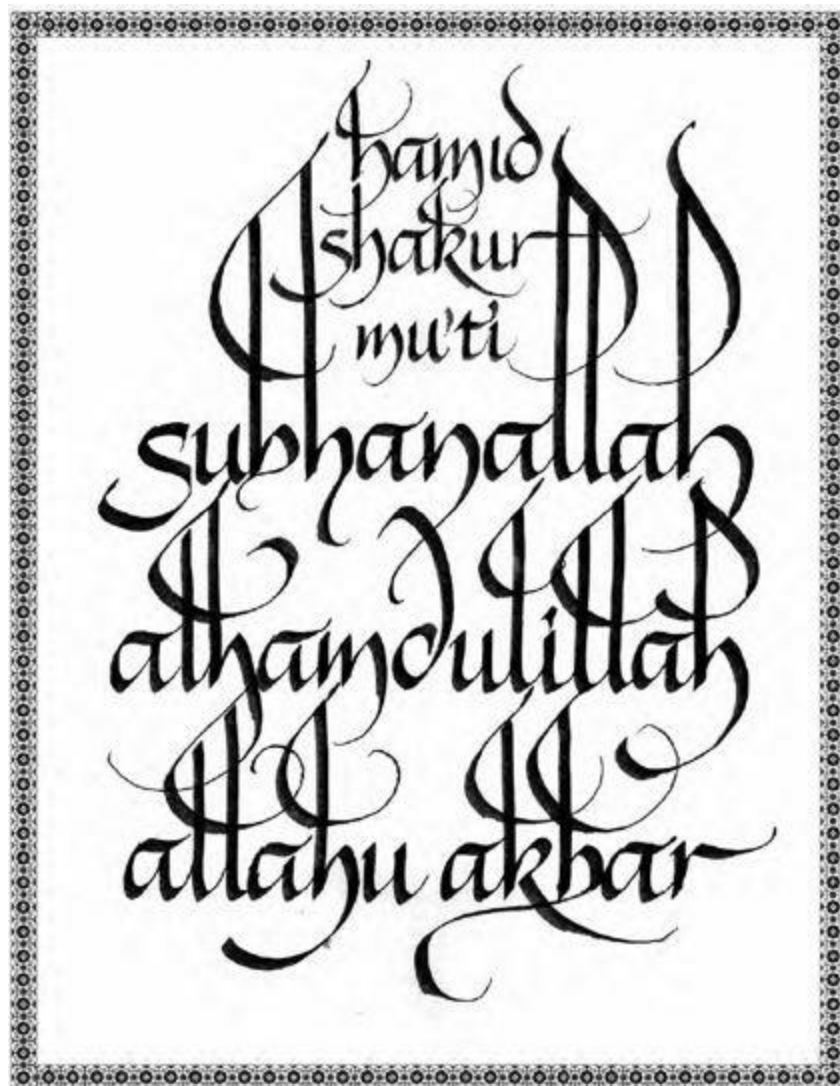 hamid
shakur
mu'ti
subhanallah
alhamdulillah
allahu akbar